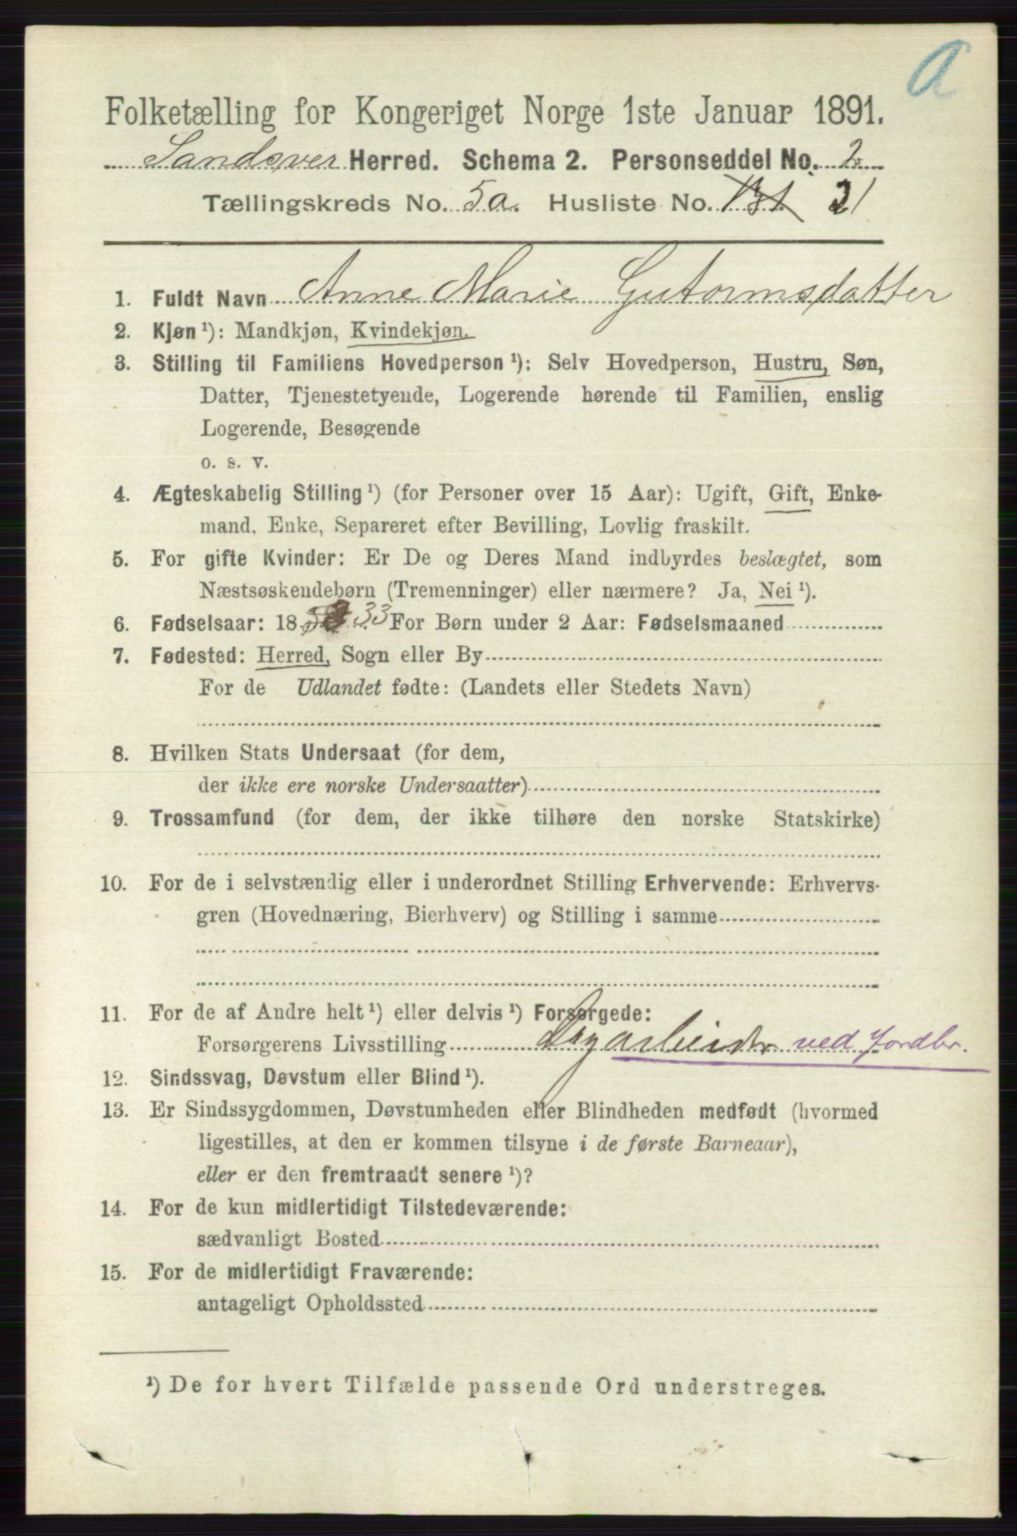 a
Folketælling for Kongeriget Norge 1ste Januar 1891.
Sandsver Herred. Schema 2. Personseddel No. 2
Tællingskreds No. 5a. Husliste No. 131. 21
1. Fuldt Navn Anne Marie Gutormsdatter
2. Kjøn ¹): Mandkjøn, Kvindekjøn.
3. Stilling til Familiens Hovedperson ¹): Selv Hovedperson, Hustru, Søn,
Datter, Tjenestetyende, Logerende hørende til Familien, enslig
Logerende, Besøgende
o. s. v.
4. Ægteskabelig Stilling ¹) (for Personer over 15 Aar): Ugift, Gift, Enke-
mand, Enke, Separeret efter Bevilling, Lovlig fraskilt.
5. For gifte Kvinder: Er De og Deres Mand indbyrdes beslægtet, som
Næstsøskendebørn (Tremenninger) eller nærmere? Ja, Nei ¹).
6. Fødselsaar: 18 33 For Børn under 2 Aar: Fødselsmaaned
7. Fødested: Herred, Sogn eller By
For de Udlandet fødte: (Landets eller Stedets Navn)
8. Hvilken Stats Undersaat (for dem,
der ikke ere norske Undersaatter)
9. Trossamfund (for dem, der ikke tilhøre den norske Statskirke)
10. For de i selvstændig eller i underordnet Stilling Erhvervende: Erhvervs-
gren (Hovednæring, Bierhverv) og Stilling i samme
11. For de af Andre helt ¹) eller delvis ¹) Forsørgede:
Forsørgerens Livsstilling Dagarbeider ved Jordbr.
12. Sindssvag, Døvstum eller Blind ¹).
13. Er Sindssygdommen, Døvstumheden eller Blindheden medfødt (hvormed
ligestilles, at den er kommen tilsyne i de første Barneaar),
eller er den fremtraadt senere ¹)?
14. For de kun midlertidigt Tilstedeværende:
sædvanligt Bosted
15. For de midlertidigt Fraværende:
antageligt Opholdssted
¹) De for hvert Tilfælde passende Ord understreges.